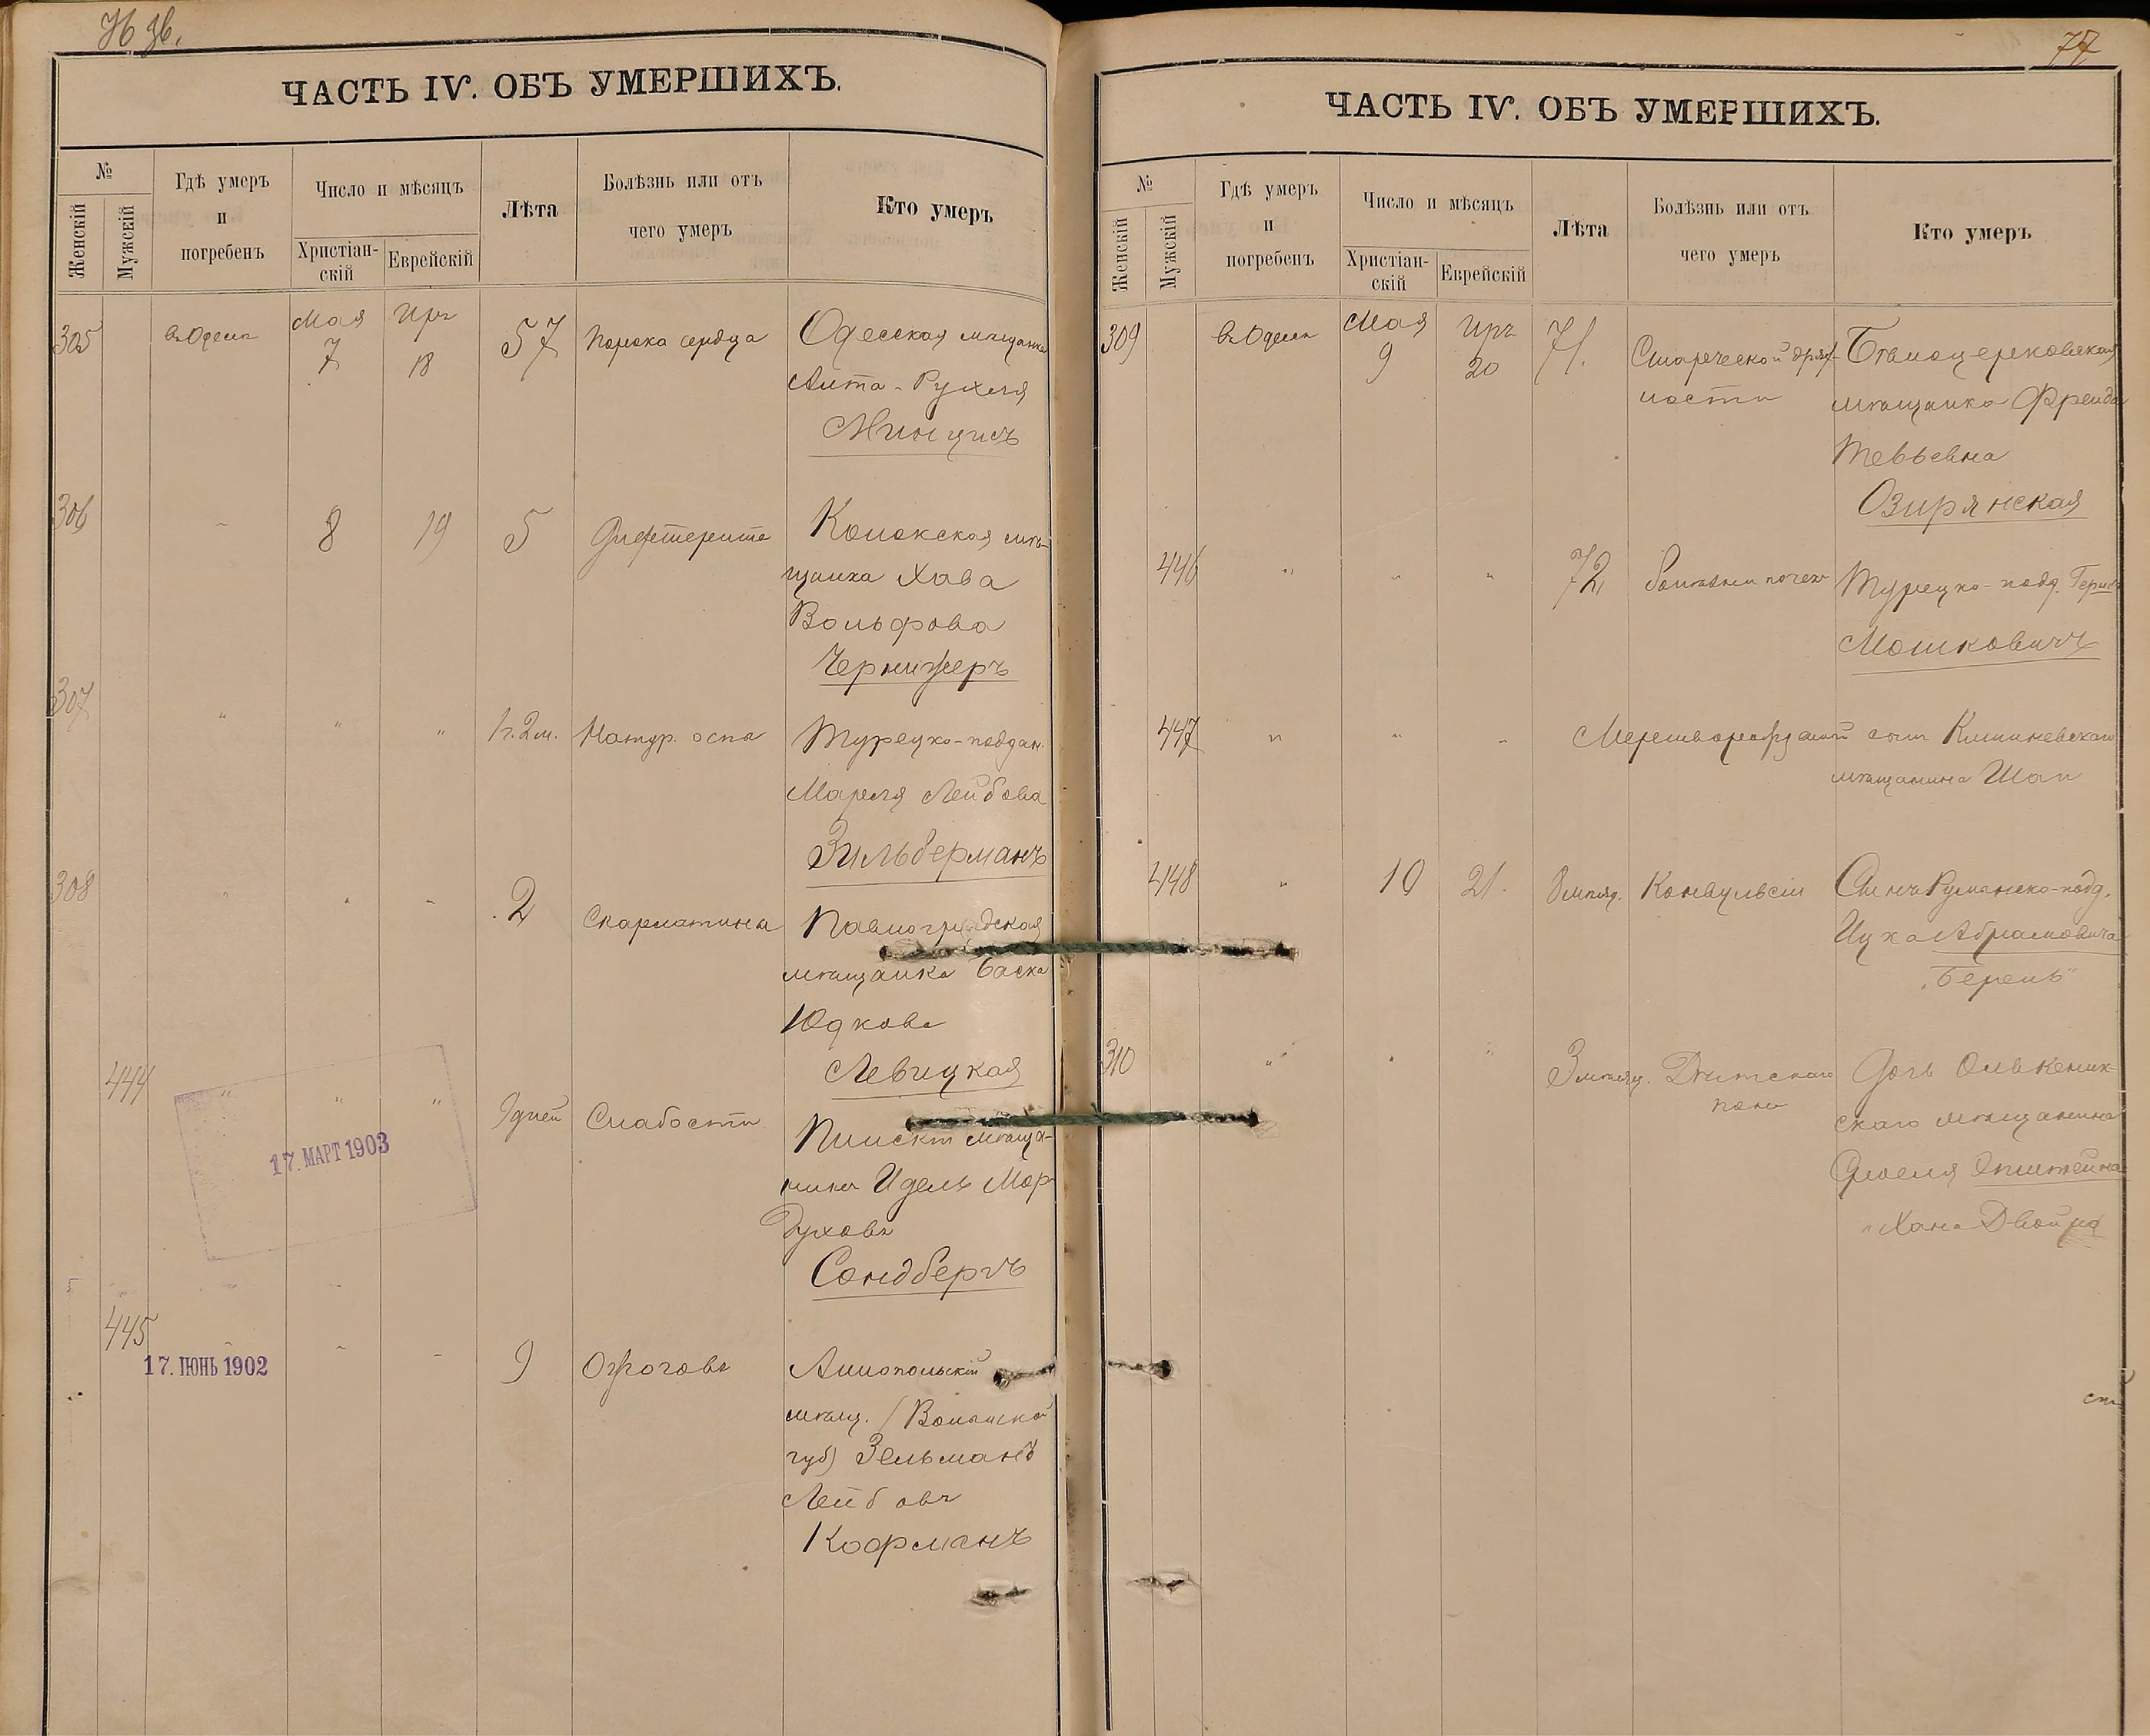 ЧАСТЬ IV. ОБЪ УМЕРШИХЪ.
№
Женскій
Мужскій
Гдѣ умеръ
и
погребенъ
Число и мѣсяцъ
Христіан-
скій
Еврейскій
Лѣта
Болѣзнь или отъ
чего умеръ
Кто умеръ
305
въ Одессѣ
Мая
7
Иръ
18
57
Порока сердца
Одесская мѣщанка
Рухля
Минцисъ
306
8
19
5
Дифтерите
мѣ-
щанка Хава
Вольфова
307
"
"
"
1г. 2м.
Натур. оспа
Турецко-поддан.
Маріея Лейбова
Зильберманъ
308
"
"
"
2
Скарлатина
Павлоградская
мѣщанка Баска
Юдкова
Левицкая
444
"
"
"
9 дней
Слабости
Пинскій мѣща-
нинъ Идель Мор-
духовъ
Сондбергъ
17. МАРТ 1903
445
"
"
"
9
Ожоговъ
Аннопольскій
мѣщ. (Волынской
губ) Зельманъ
Лейбовъ
Кофманъ
17. ІЮНЬ 1902
77
ЧАСТЬ IV. ОБЪ УМЕРШИХЪ.
№
Женскій
Мужскій
Гдѣ умеръ
и
погребенъ
Число и мѣсяцъ
Христіан-
скій
Еврейскій
Лѣта
Болѣзнь или отъ
чего умеръ
Кто умеръ
309
въ Одессѣ
Мая
9
Иръ
20
71.
Старческой дрях-
лости
Бѣлоцерковская
мѣщанка Фрейда
Тевьевна
Озирянская
446
"
"
"
72
Болѣзни почекъ
Турецко-подд. Герш
Мошковичъ
447
"
"
"
Мертворожденный сынъ Кишиневскаго
мѣщанина Шап
448
"
10
21.
8 мѣсяц.
Конвульсіи
Сынъ Румынско-подд.
Ицка Абрамовича
"Берель"
310
"
"
"
3 мѣсяц.
Дѣтскаго
Дочь Олькеник-
скаго мѣщанина
Эпштейна
"Хана Двойра"